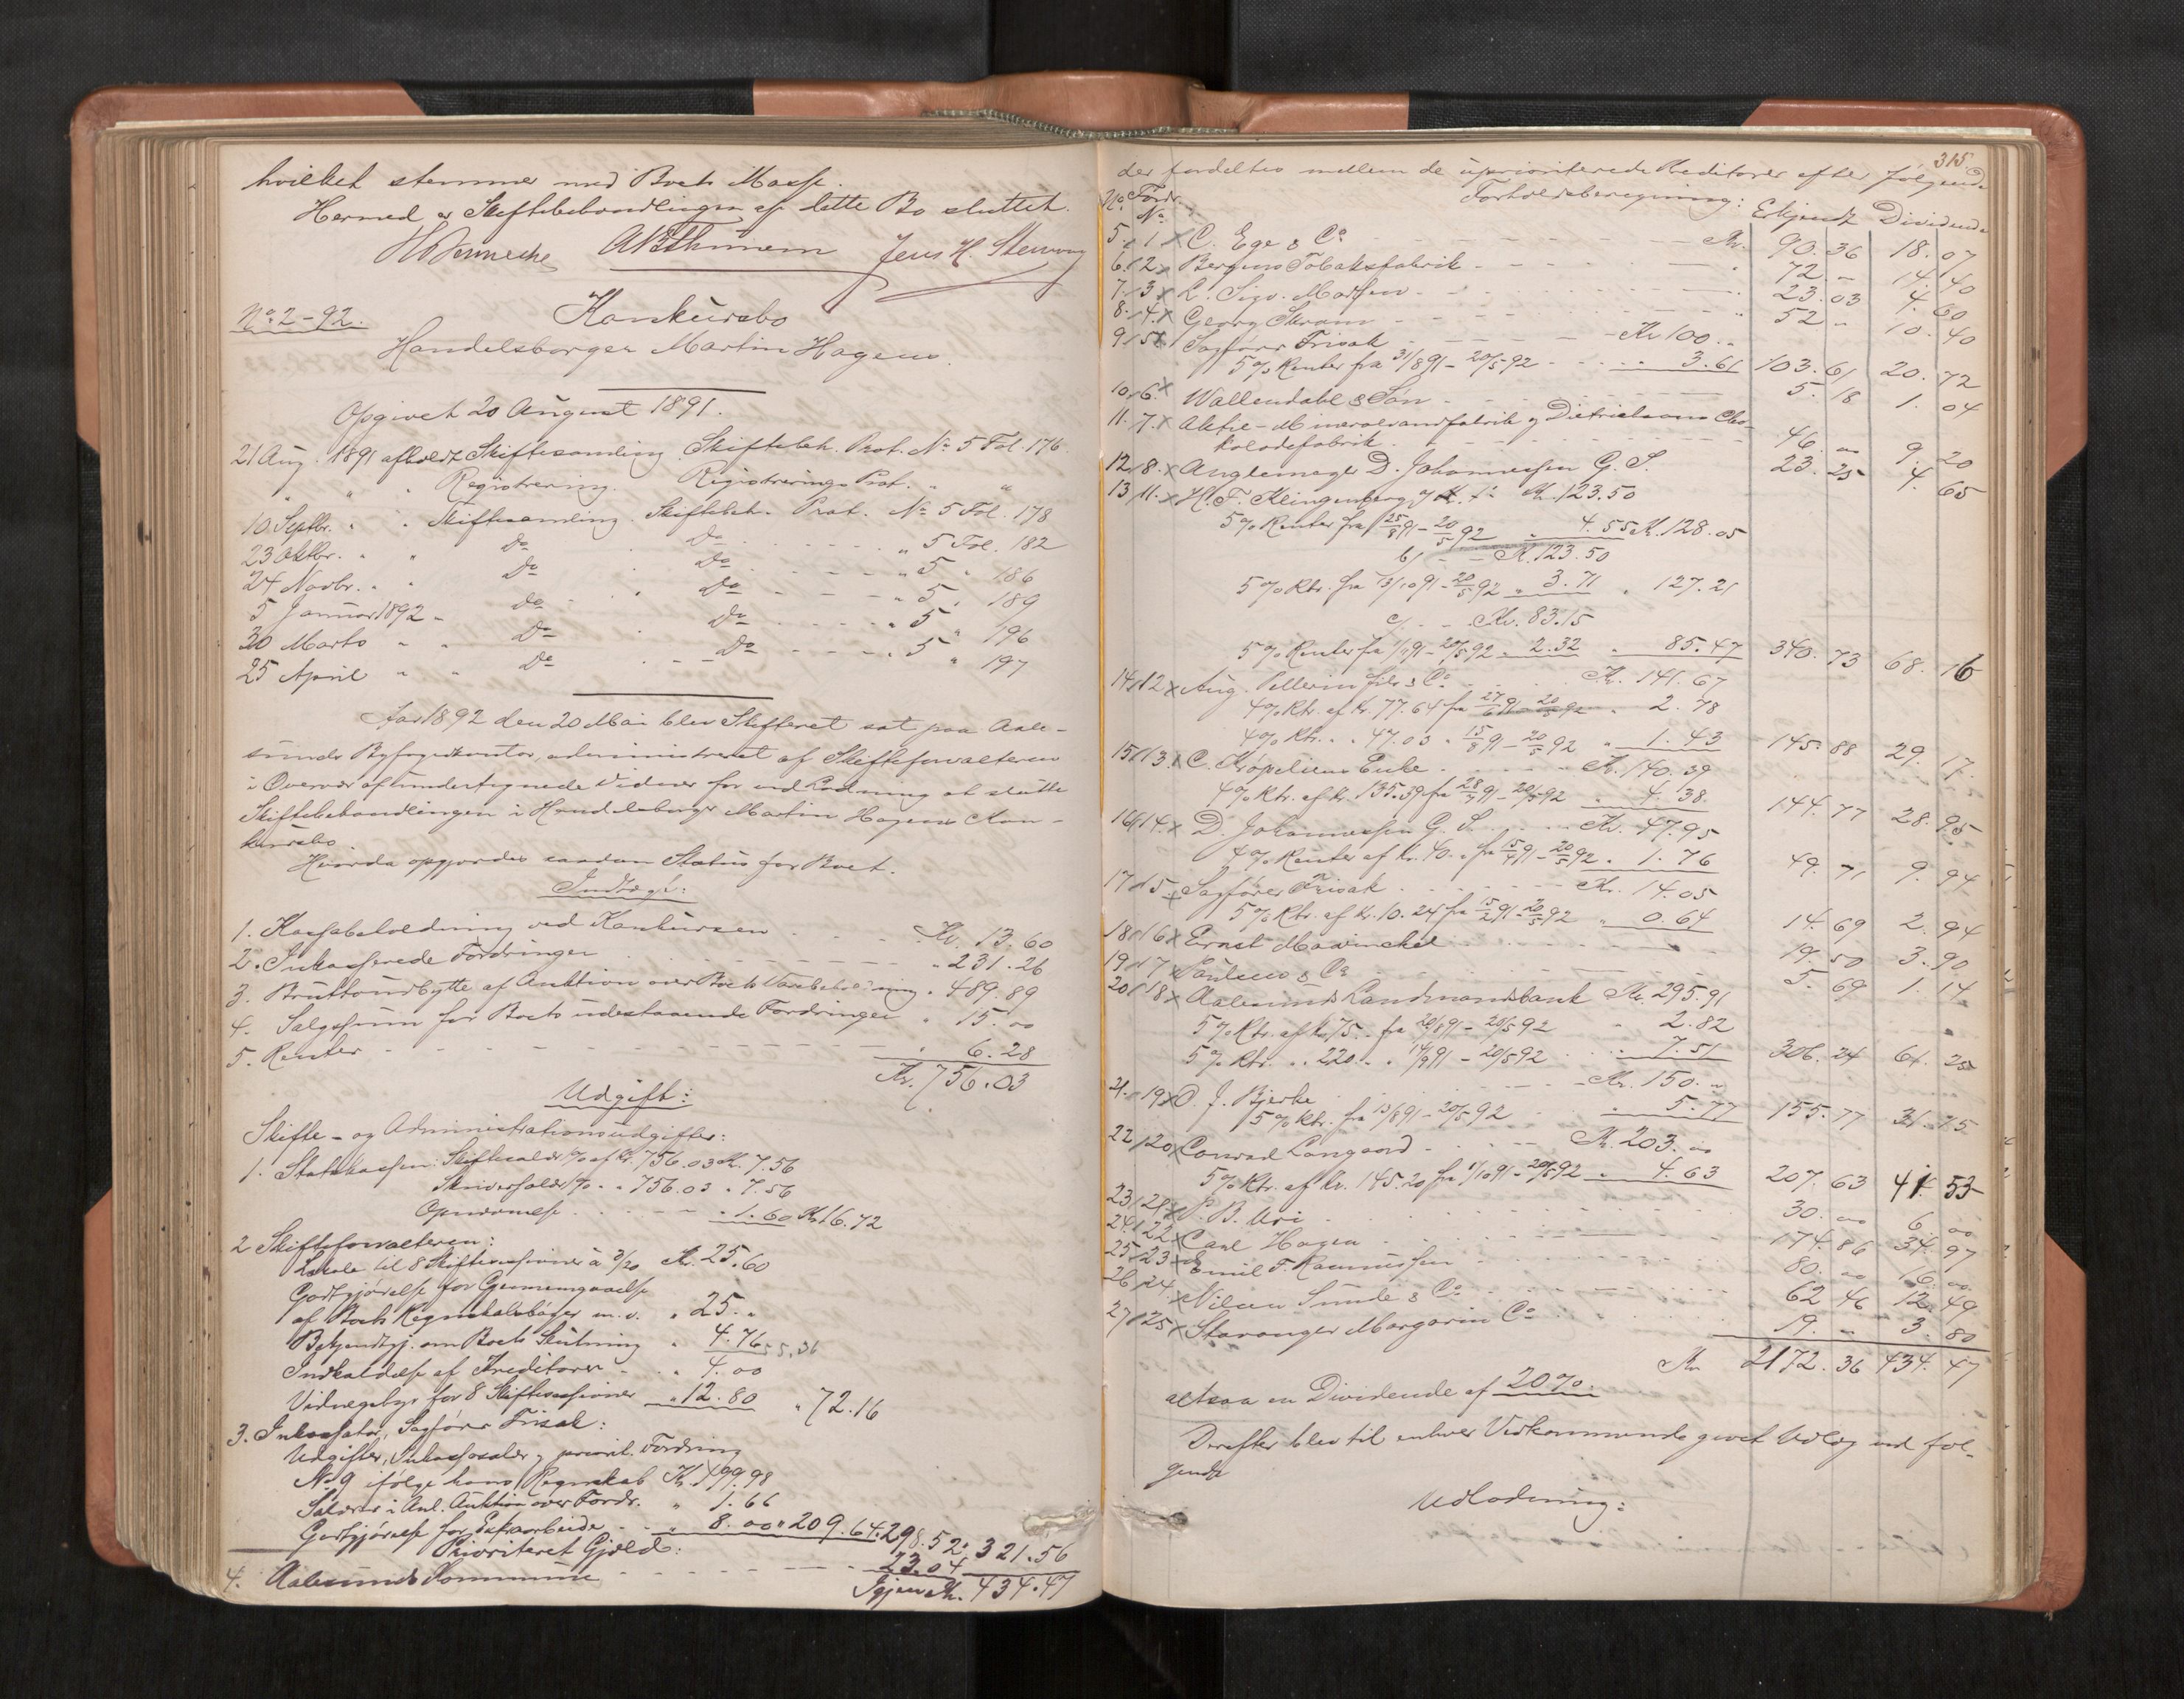 hvilket stemmer med Boets Masse.
Hermed er Skiftebehandlingen af dette Bo sluttet.
Jens H.
No 2-92. Konkursbo
Handelsborger Martin Hagens.
Opgivet 20 August 1891.
21 Aug. 1891 afholdt Skiftesamling Skiftebeh. Prot. No 5 Fol. 176
" " " Registrering. Registrerings Prot. " "
10 Septbr. " " Skiftesamling. Skiftebeh. Prot. No 5 Fol. 178
23 Oktbr. " " Do Do " 5 Fol. 182
24 Novbr. " " Do Do " 5 " 186
5 Januar 1892 " Do Do " 5 " 189
30 Marts " " Do Do " 5 " 196
25 April " " Do Do " 5 " 197
Aar 1892 den 20 Mai blev Skifteret sat paa Aale-
sunds Byfogedkontor, administreret af Skifteforvalteren
i Overvær af undertegnede Vidner for ved Lodning at slutte
Skiftebehandlingen i Handelsborger Martin Hagens Kon-
kursbo.
Hvorda opgjordes saadan Status for Boet.
Indtægt:
1. Kassabeholdning ved Konkursen Kr. 13.60
2. Inkasserede Fordringer " 231.26
3. Bruttoudbytte af Auktion over Boets Varebeholdning " 489.89
4. Salgssum for Boets udestaaende Fordringer " 15.00
5. Renter " 6.28
Kr. 756.03
Udgift:
Skifte- og Administrationsudgifter:
1. Statskassen: Skiftesalær % af Kr. 756.03 Kr. 7.56
Skriversalær % " " 756.03 " 7.56
" 1.60 Kr. 16.72
2 Skifteforvalteren:
Lokale til 8 Skiftesessioner à 3/20 Kr. 25.60
Godtgjørelse for Gjennemgaaelse
af Boets Regnskabsbøger m.v. " 25. "
Bekjendtgj. om Boets Slutning " 4.76 55.36
Indkaldelse af Kreditorer " 4.00
Vidnegebyr for 8 Skiftesessioner " 12.80 " 72.16
3. Inkassator, Sagfører Frisak:
Udgifter, Inkassosalær og priorit. Fordring
No 9 ifølge hans Regnskab Kr. 199.98
Salær i Anl. Auktion over Fordr. " 1.66
Godtgjørelse for Extraarbeide " 8.00 " 209.64. 298.52 " 321.56
Prioriteret Gjæld:
4. Aalesunds Kommune 23.04
Igjen Kr. 434.47
315
der fordeltes mellem de uprioriterede Kreditorer efter følgende
No Fordr. No Forholdsberegning: Erkjendt Dividende
5 / 1 x C. Ege & Co Kr. 90.36 18.07
6 / 2 x Bergens Tobaksfabrik " 72. - 14.40
7 / 3 x L. Sigv. Madsen " 23.03 4.60
8 / 4 x Georg Skram " 52 " 10.40
9 / 5 x Sagfører Frisak Kr. 100. "
5% Renter fra 31/8 91 - 20/5 92 " 3.61 103.61 20.72
10 / 6 x Wallendahl & Søn 5.18 1.04
11 / 7 x Aktie-Mineralvandfabrik og Dietrichsons Cho-
koladefabrik 46.00 9.20
12 / 8 x Anglemager D. Johannessen G. S. 23.25 4.65
13 / 11 x H. F. Klingenberg Kr. 123.50
5% Renter fra 25/8 91 - 20/5 92 " 4.55 Kr. 128.05
b/ - - Kr. 123.50
5% Rtr. fra 13/10 91 - 20/5 92 " 3.71 " 127.21
c/ - - Kr. 83.15
5% Renter fra 1/11 91 - 20/5 92 " 2.32 " 85.47 340.73 68.16
14 / 12 x Aug. Pellerin fils & Co Kr. 141.67
4% Rtr. af Kr. 77.64 fra 27/6 91 - 20/5 92 " 2.78
4% Rtr. " " 47.03 " 15/8 91 - 20/5 92 " 1.43 145.88 29.17
15 / 13 x C. Kröpeliens Enke Kr. 140.39
4% Rtr. af Kr. 135.39 fra 28/7 91 - 20/5 92 " 4.38 144.77 28.95
16 / 14 x D. Johannessen G. S. Kr. 47.95
4% Renter af Kr. 40. " fra 15/4 91 - 20/5 92 " 1.76 49.71 9.94
17 / 15 x Sagfører Frisak Kr. 14.05
5% Rtr. af Kr. 10.24 fra 15/2 91 - 20/5 92 " 0.64 14.69 2.94
18 / 16 x Ernst Mowinckel 19.50 3.90
19 / 17 x Paulsens & Co 5.69 1.14
20 / 18 x Aalesunds Landmandsbank Kr. 295.91
5% Rtr. af Kr. 75. - fra 20/8 91 - 20/5 92 " 2.82
5% Rtr. " " 220. " " 14/9 91 - 20/5 92 " 7.51 306.24 61.25
21 / 19 x O. J. Bjerke Kr. 150. "
5% Rtr. fra 13/8 91 - 20/5 92 " 5.77 155.77 31.15
22 / 20 x Conrad Langaard Kr. 203.00
5% Rtr. af Kr. 145.20 fra 1/10 91 - 20/5 92 " 4.63 207.63 41.53
23 / 21 x P. B. Ari 30.00 6.00
24 / 22 x Carl Hagen 174.86 34.97
25 / 23 x Emil F. Rasmussen 80.00 16.00
26 / 24 x Nilsen Sunde & Co 62.46 12.49
27 / 25 x Stavanger Margarin Co 19. - 3.80
Kr. 2172.36 434.47
altsaa en Dividende af 20%.
Derefter blev til enhver Vedkommende gjort Udlæg ved føl-
gende
Udlodning: